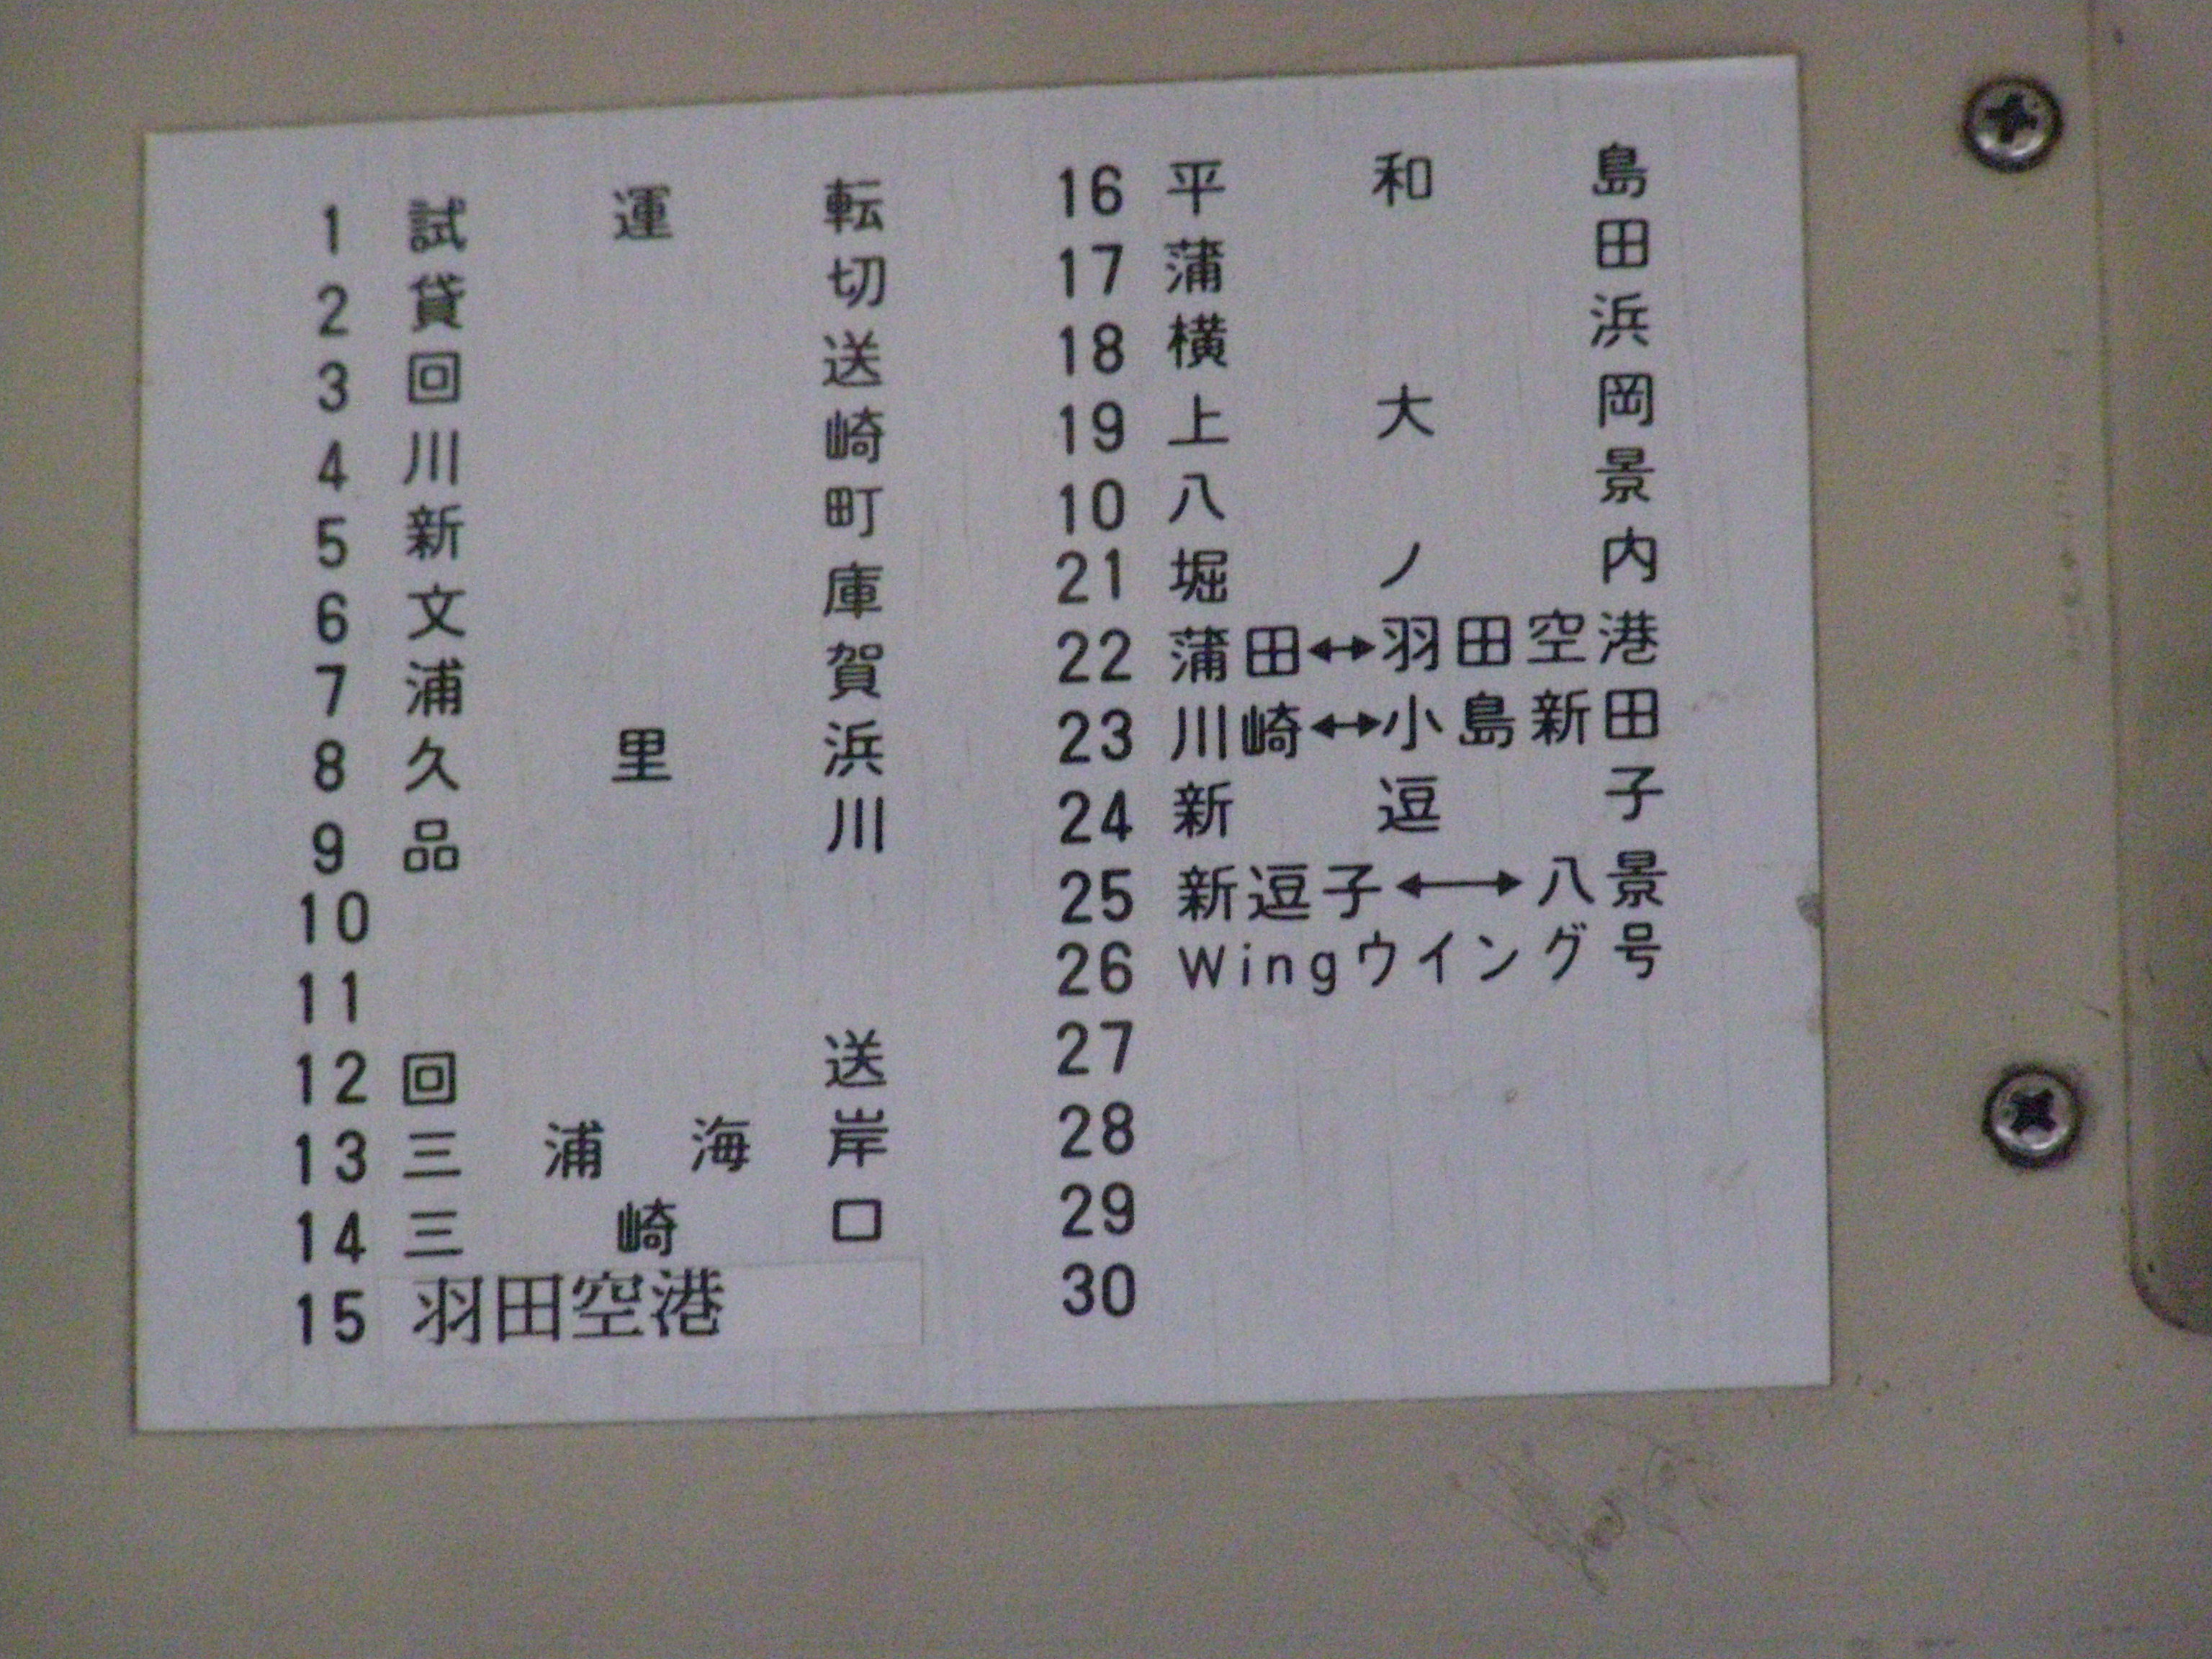 1 試運転
2 貸切
3 回送
4 川崎
5 新町
6 文庫
7 浦賀
8 久里浜
9 品川
10
11
12 回送
13 三浦海岸
14 三崎口
15 羽田空港
16 平和島
17 蒲田
18 横浜
19 上大岡
10 八景
21 堀ノ内
22 蒲田↔羽田空港
23 川崎↔小島新田
24 新逗子
25 新逗子↔八景
26 Wingウイング号
27
28
29
30